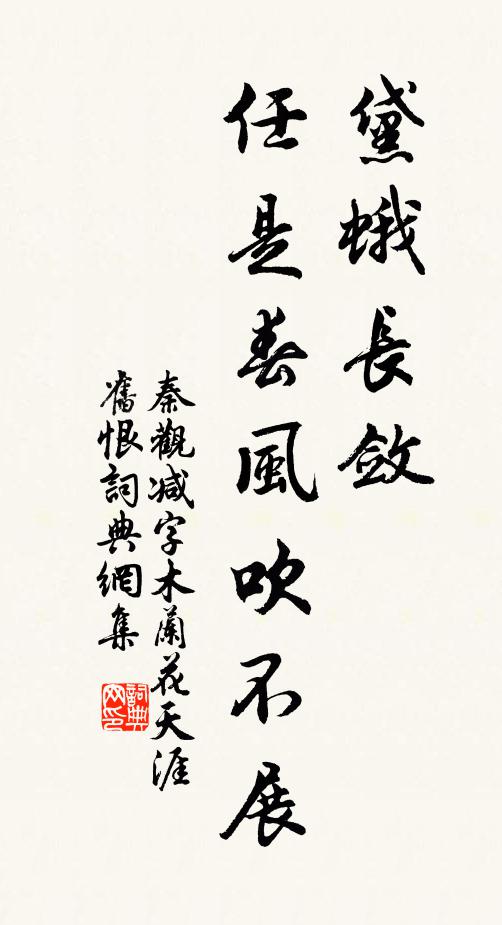 黛蛾長斂
任是春風吹不展
秦觀减字木蘭花天涯
舊恨詞典網集
詞典
网印